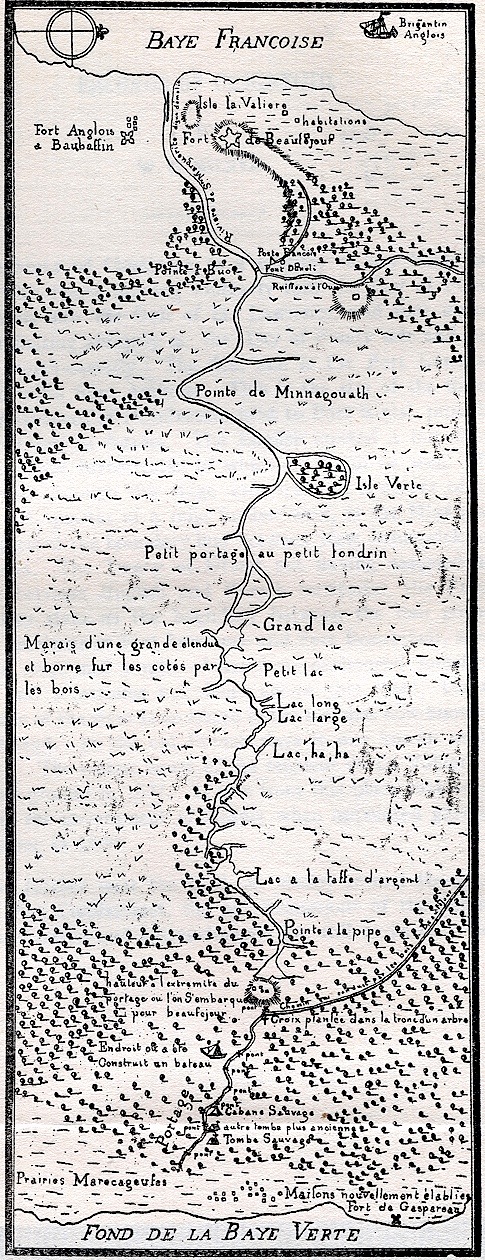 Brigantin
Anglois
BAYE FRANÇOISE
Isle la Valiere
habitations
Fort Anglois
a Baubassin
Fort de Beausejour
Riviere de Ste Marguerite
Poste francois
Pointe a Buot
Pont
Ruisseau a l'Ours
Pointe de Minnagouath
Isle Verte
Petit portage au petit tondrin
Grand lac
Marais d'une grande étendue
et borné sur les cotés par
les bois
Petit lac
Lac long
Lac large
Lac, ha, ha
Lac a la tasse d'argent
Pointe a la pipe
hauteur a l'extremite du
portage ou l'on S'embarque
pour beausejour
pont
Chemin
Croix plantée dans le tronc d'un arbre
Endroit ou a été
Construit un bateau
pont
pont
pont
Cabane Sauvage
pont
autre tombe plus ancienne
Tombe Sauvage
pont
Portage
Prairies Marecageuses
Maisons nouvellement établies
Fort de Gaspareau
FOND DE LA BAYE VERTE